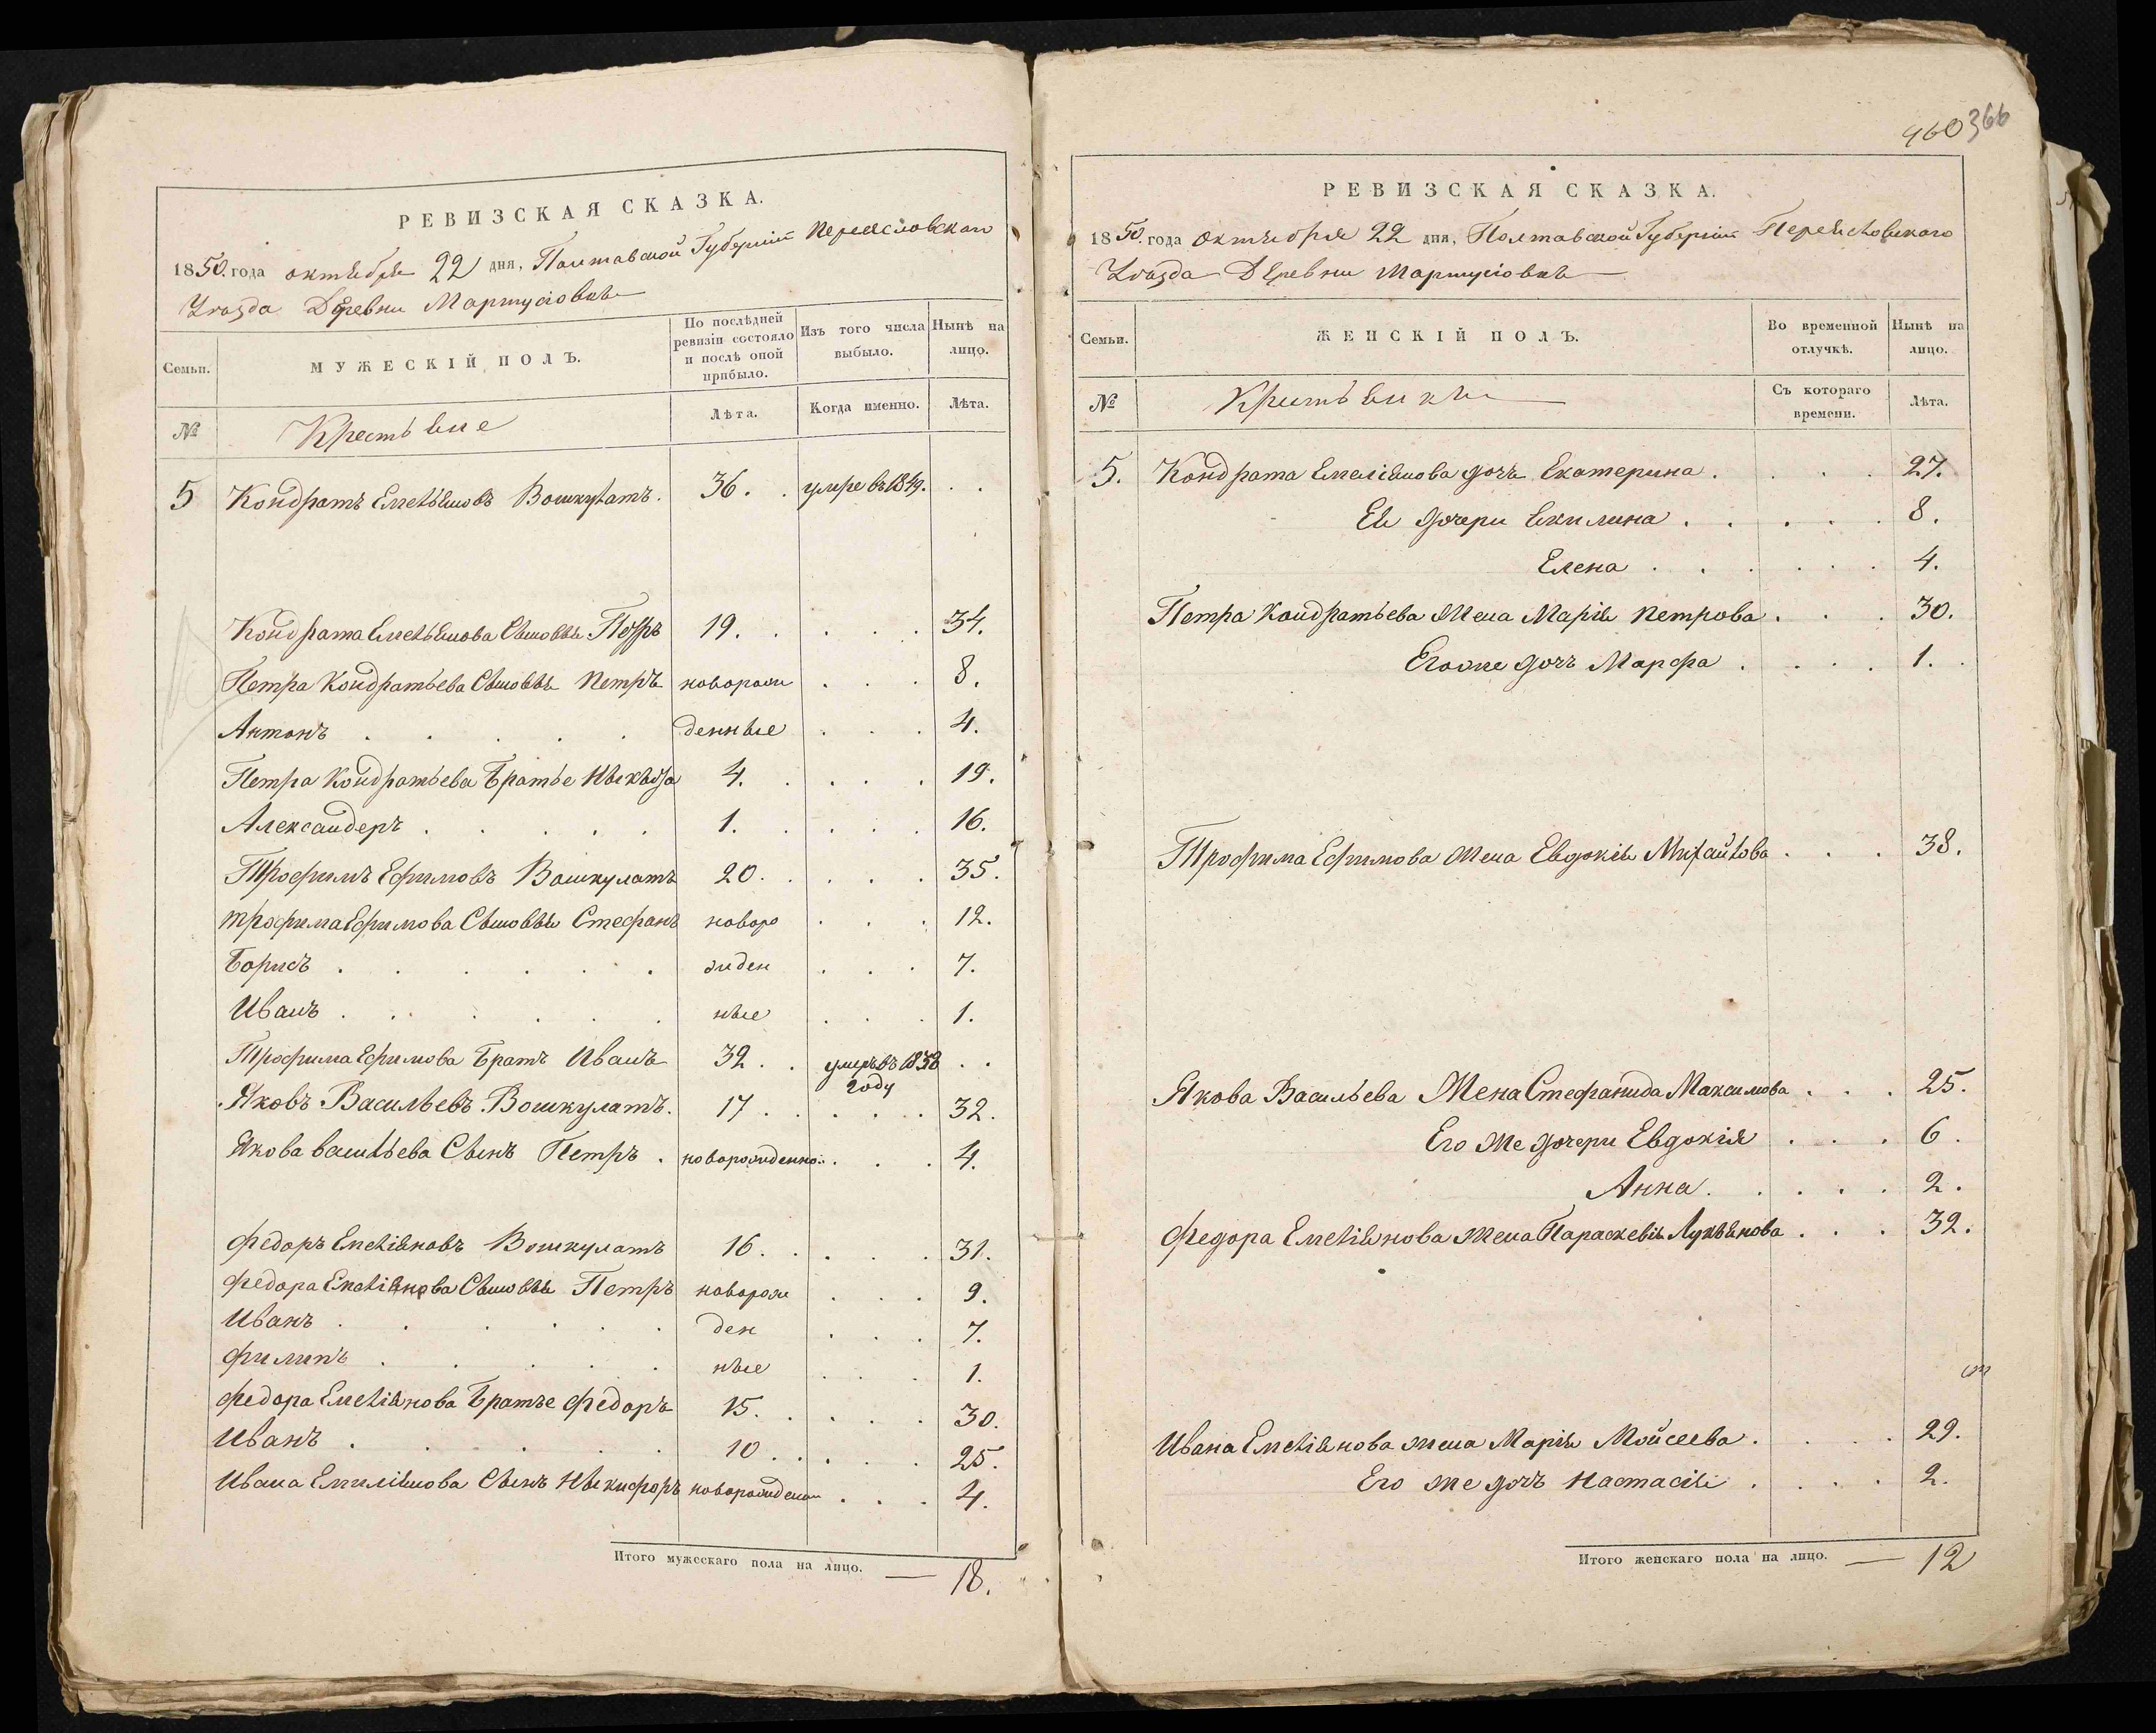 РЕВИЗСКАЯ СКАЗКА.
1850. года октября 22 дня, Полтавской Губерніи Переясловскаго
Уезда Деревни Мартусіовки
Семьи.
МУЖЕСКІЙ ПОЛЪ.
По послѣдней ревизіи состояло и послѣ оной прибыло.
Изъ того числа выбыло.
Нынѣ на лицо.
№
Крестьяне
Лѣта.
Когда именно.
Лѣта.
5 Кондратъ Емельяновъ Вошкулатъ. 36. . умре въ 1849. . .
Кондрата Емельянова Сыновья Петръ 19. . . . . 34.
Петра Кондратьева Сыновья Петръ новорож . . . 8.
Антонъ . . . . . денные . . . 4.
Петра Кондратьева Братье Никита 4. . . . . 19.
Александеръ . . . . . 1. . . . . 16.
Трофимъ Ефимовъ Вошкулатъ 20. . . . . 35.
трофима Ефимова Сыновья Стефанъ новоро . . . 12.
Борисъ . . . . . . жден . . . 7.
Иванъ . . . . . . ные . . . 1.
Трофима Ефимова Братъ Иванъ 32. . умеръ въ 1838 . .
году
Яковъ Васильевъ Вошкулатъ. 17. . . . . 32.
Якова васильева Сынъ Петръ . новорожденно.. . . . 4.
Федоръ Емеліяновъ Вошкулатъ 16. . . . . 31.
Федора Емеліянова Сыновья Петръ новорож . . . 9.
Иванъ . . . . . . ден . . . 7.
Филипъ . . . . . ные . . . 1.
Федора Емеліянова Братье Федоръ 15. . . . . 30.
Иванъ . . . . . . 10. . . . . 25.
Ивана Емиліянова Сынъ Никифоръ новорожденн . . . 4.
Итого мужескаго пола на лицо. — 18.
460 366
РЕВИЗСКАЯ СКАЗКА.
1850. года октября 22 дня, Полтавской Губерніи Переясловскаго
Уезда Деревни Мартусіовки
Семьи.
ЖЕНСКІЙ ПОЛЪ.
Во временной отлучкѣ.
Нынѣ на лицо.
№
Крестьянки
Съ котораго времени.
Лѣта.
5. Кондрата Емеліянова дочь Екатерина . . . . 27.
Ея дочери Акилина . . . . . 8.
Елена . . . . . . 4.
Петра Кондратьева Жена Марія петрова . . . 30.
Егоже дочъ Марфа . . . . 1.
Трофима Ефимова Жена Евдокія Михайлова . . . 38.
Якова Васильева Жена Стефанида Максимова . . . 25.
Его же дочери Евдокія . . . 6.
Анна . . . . . 2.
Федора Емеліянова жена Параскевія Лукьянова . . . 32.
Ивана Емеліянова жена Марія Мойсеева . . . . 29.
Его же дочъ Настасія . . . . 2.
Итого женскаго пола на лицо. — 12